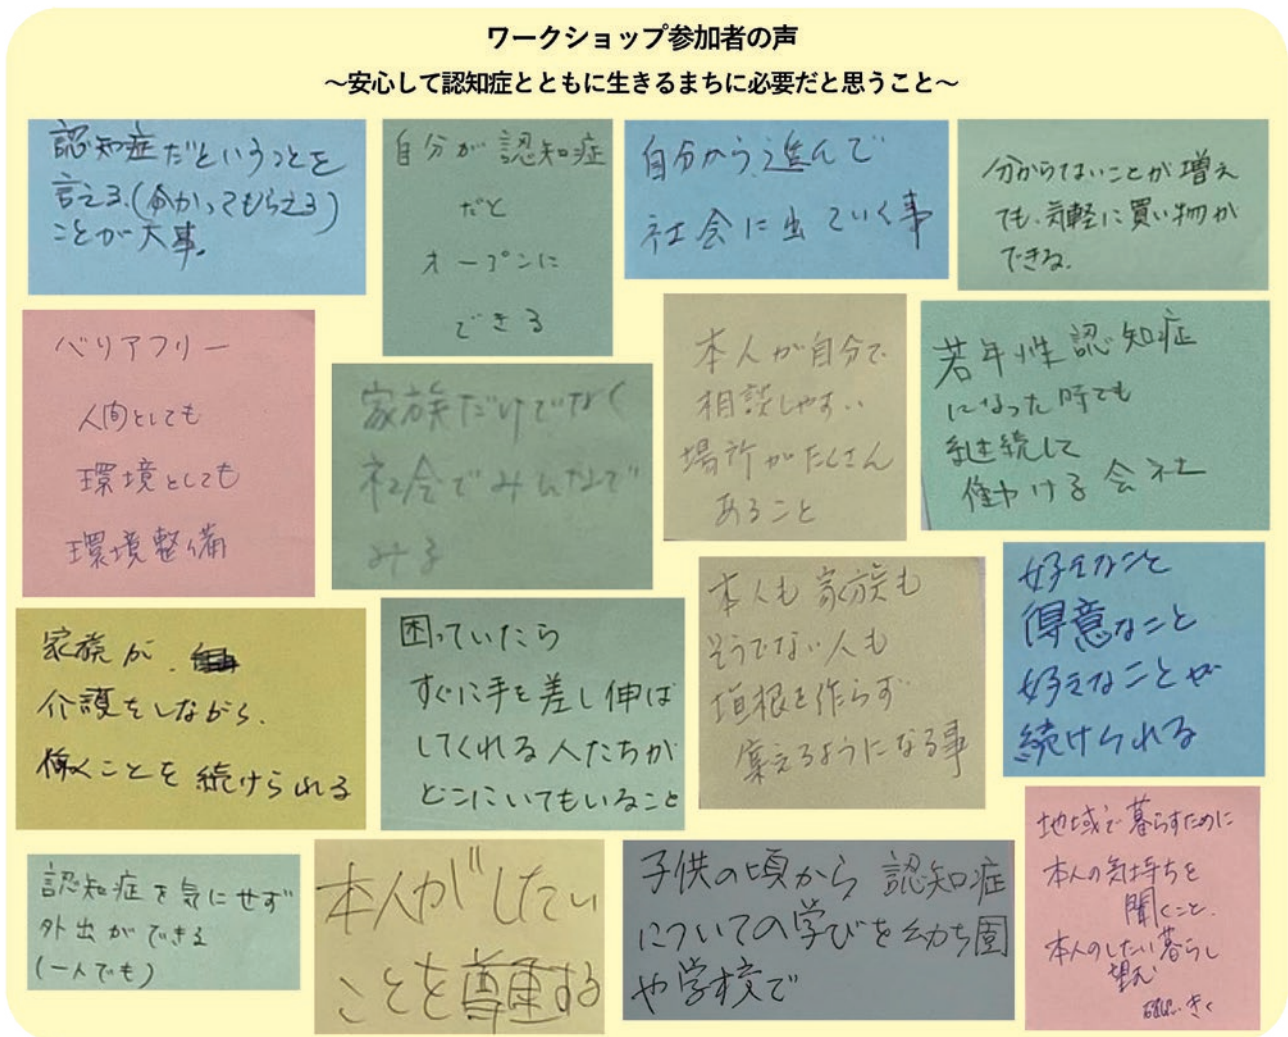 ワークショップ参加者の声
～安心して認知症とともに生きるまちに必要だと思うこと～
認知症だということを
言える.(分かってもらえる)
ことが大事。
自分が認知症
だと
オープンに
できる
自分から進んで
社会に出ていく事
分からないことが増え
ても、気軽に買い物が
できる.
バリアフリー
人間としても
環境としても
環境整備
家族だけでなく
社会でみんなで
みる
本人が自分で
相談しやすい
場所がたくさん
あること
若年性認知症
になった時でも
継続して
働ける会社
家族が
介護をしながら、
働くことを続けられる
困っていたら
すぐに手を差し伸ば
してくれる人たちが
どこにいてもいること
本人も家族も
そうでない人も
垣根を作らず
集えるようになる事
好きなこと
得意なこと
好きなことが
続けられる
認知症を気にせず
外出ができる
(一人でも)
本人がしたい
ことを尊重する
子供の頃から認知症
についての学びを幼ち園
や学校で
地域で暮らすために
本人の気持ちを
聞くこと.
本人のしたい暮らし
望む
きく